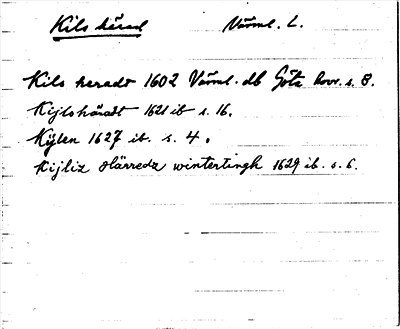 Kils härad Värml. L.
Kils heradt 1602 Värml. db Göta hovr. s. 8.
Kijlshäradt 1621 ib s. 16.
Kijlen 1627 ib. s. 4.
Kijliz Härredz wintertingh 1629 ib. s. 6.